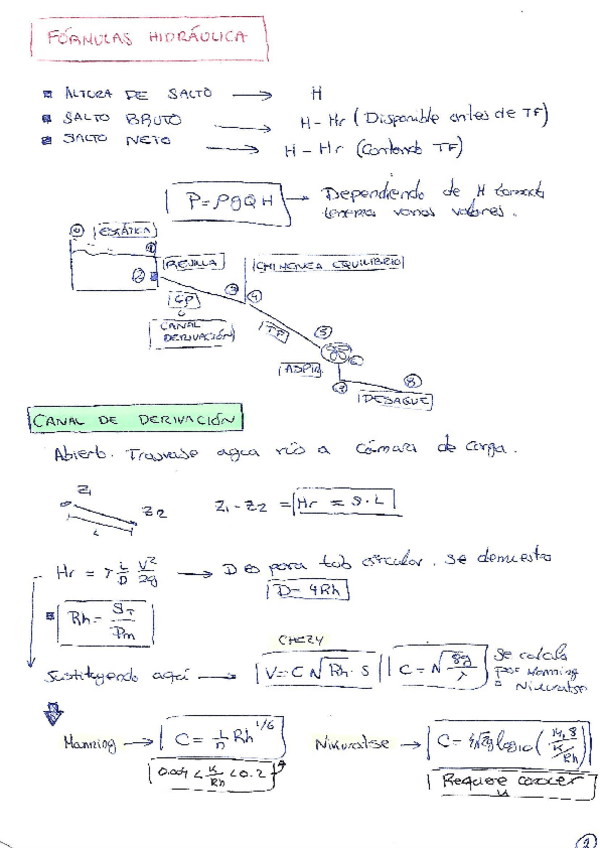 FÓRMULAS HIDRÁULICA
ALTURA DE SALTO → H
SALTO BRUTO → H - Hr (Disponible antes de TF)
SALTO NETO → H - Hr (Contando TF)
P = ρgQH → Dependiendo de H tomada
tenemos varios valores.
0 ESTÁTICA
1
2 REJILLA
CHIMENEA EQUILIBRIO
CP
ó
CANAL
DERIVACIÓN
3 4
TF
5
6
ASPIR
7
8
DESAGUE
CANAL DE DERIVACIÓN
Abierto. Trasvase agua río a cámara de carga.
Z1
Z2
L
Z1 - Z2 = Hr = S·L
Hr = λ L/D V²/2g → D es para tub circular. Se demuestra
D = 4Rh
Rh = ST/Pm
CHEZY
Sustituyendo aquí → V = C √Rh·S C = √8g/λ Se calcula
por Manning
o Nikuratse
Manning → C = 1/n Rh^1/6
Nikuratse → C = 4√2g log10 (14,8 / K/Rh)
0.004 < K/Rh < 0.2
Requiere conocer
K
2